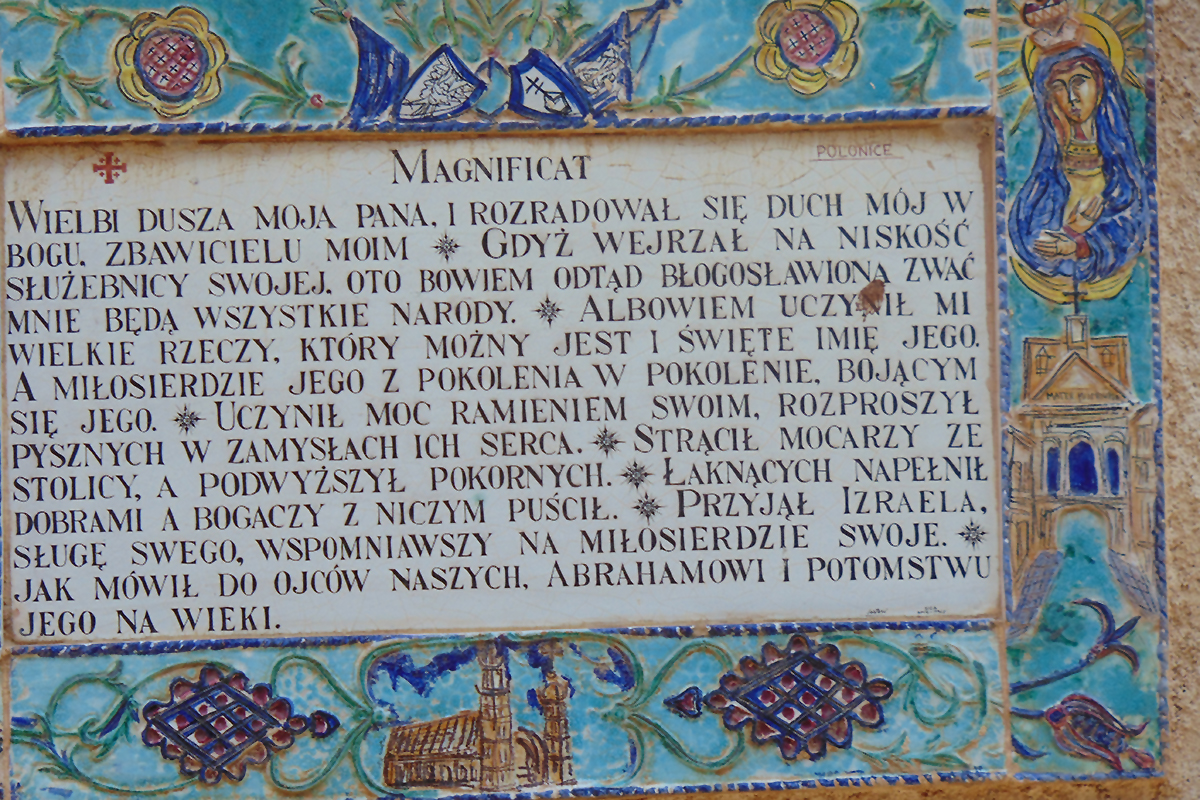 MAGNIFICAT
POLONICE
WIELBI DUSZA MOJA PANA, I ROZRADOWAŁ SIĘ DUCH MÓJ W
BOGU, ZBAWICIELU MOIM GDYŻ WEJRZAŁ NA NISKOŚĆ
SŁUŻEBNICY SWOJEJ. OTO BOWIEM ODTĄD BŁOGOSŁAWIONĄ ZWAĆ
MNIE BĘDĄ WSZYSTKIE NARODY. ALBOWIEM UCZYNIŁ MI
WIELKIE RZECZY, KTÓRY MOŻNY JEST I ŚWIĘTE IMIĘ JEGO.
A MIŁOSIERDZIE JEGO Z POKOLENIA W POKOLENIE, BOJĄCYM
SIĘ JEGO. UCZYNIŁ MOC RAMIENIEM SWOIM, ROZPROSZYŁ
PYSZNYCH W ZAMYSŁACH ICH SERCA. STRĄCIŁ MOCARZY ZE
STOLICY, A PODWYŻSZYŁ POKORNYCH. ŁAKNĄCYCH NAPEŁNIŁ
DOBRAMI A BOGACZY Z NICZYM PUŚCIŁ. PRZYJĄŁ IZRAELA,
SŁUGĘ SWEGO, WSPOMNIAWSZY NA MIŁOSIERDZIE SWOJE.
JAK MÓWIŁ DO OJCÓW NASZYCH, ABRAHAMOWI I POTOMSTWU
JEGO NA WIEKI.